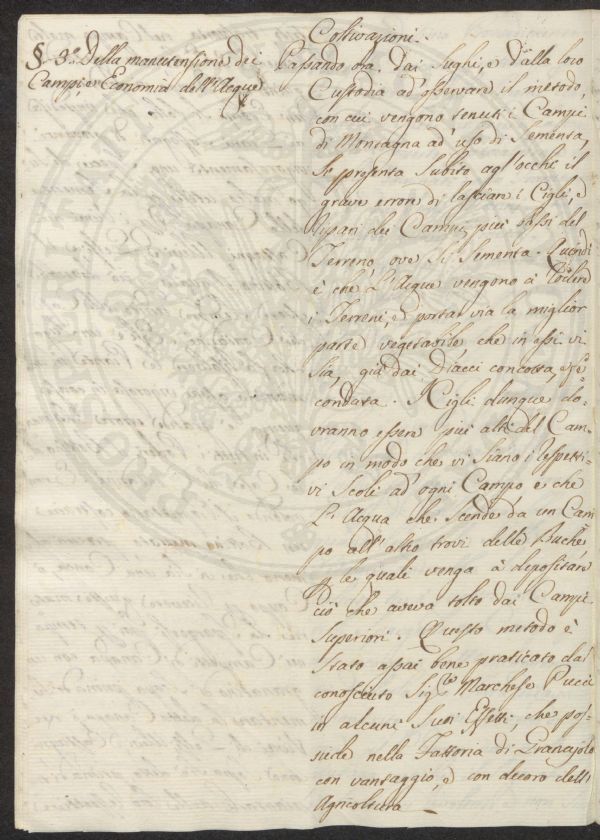 Coltivazioni.
§ 3.º Della manutensione dei
Campi e Economia dell'Acque
Passando ora dai Sughi, e dalla loro
Custodia ad osservare il metodo,
con cui vengono tenuti i Campi
di Montagna ad uso di Sementa,
Si presenta Subito agl'occhi il
grave errore di lasciare i Cigli, e
ripari dei Campi più bassi del
Terreno ove Si Sementa. Quindi
è che l'Acque vengono à
i Terreni, e portar via la miglior
parte vegetabile che in essi vi
Sia, già dai Diacci concotta, e fe-
condata. I Cigli dunque do-
vranno essere più alti del Cam-
po in modo che vi Siano i respetti-
vi Scoli ad ogni Campo e che
l'Acqua che Scende da un Cam
po all'altro trovi delle Buche
p le quali venga à depositare
ciò che aveva tolto dai Campi
Superiori. Questo metodo è
Stato assai bene praticato dal
conosciuto Sig.re Marchese Pucci
in alcuni Suoi Effetti, che pos-
siede nella Fattoria di Granajolo
con vantaggio, e con decoro dell'
Agricoltura